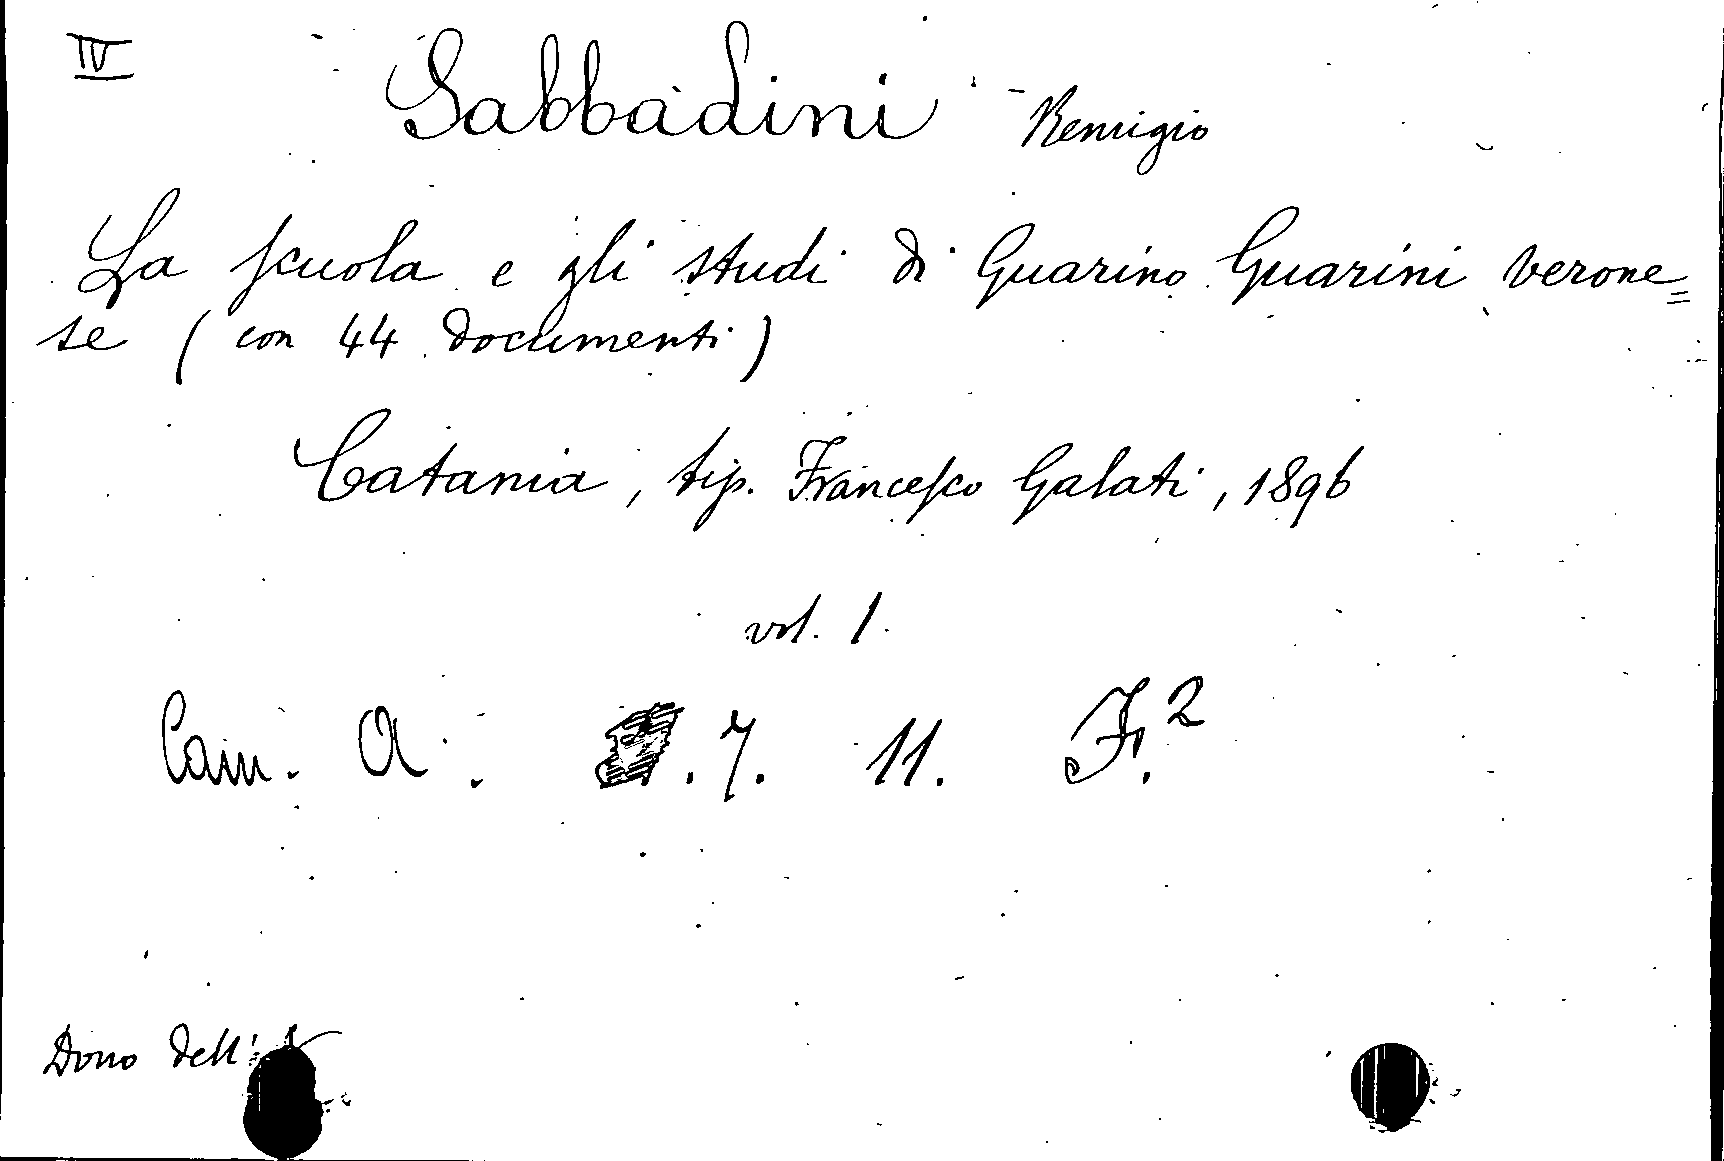 IV
Sabbadini Remigio
La scuola e gli studi di Guarino Guarini verone=
se (con 44 documenti)
Catania, tip. Francesco Galati, 1896
vol. 1.
Cam. A. . 7. 11. F.2
Dono dell'